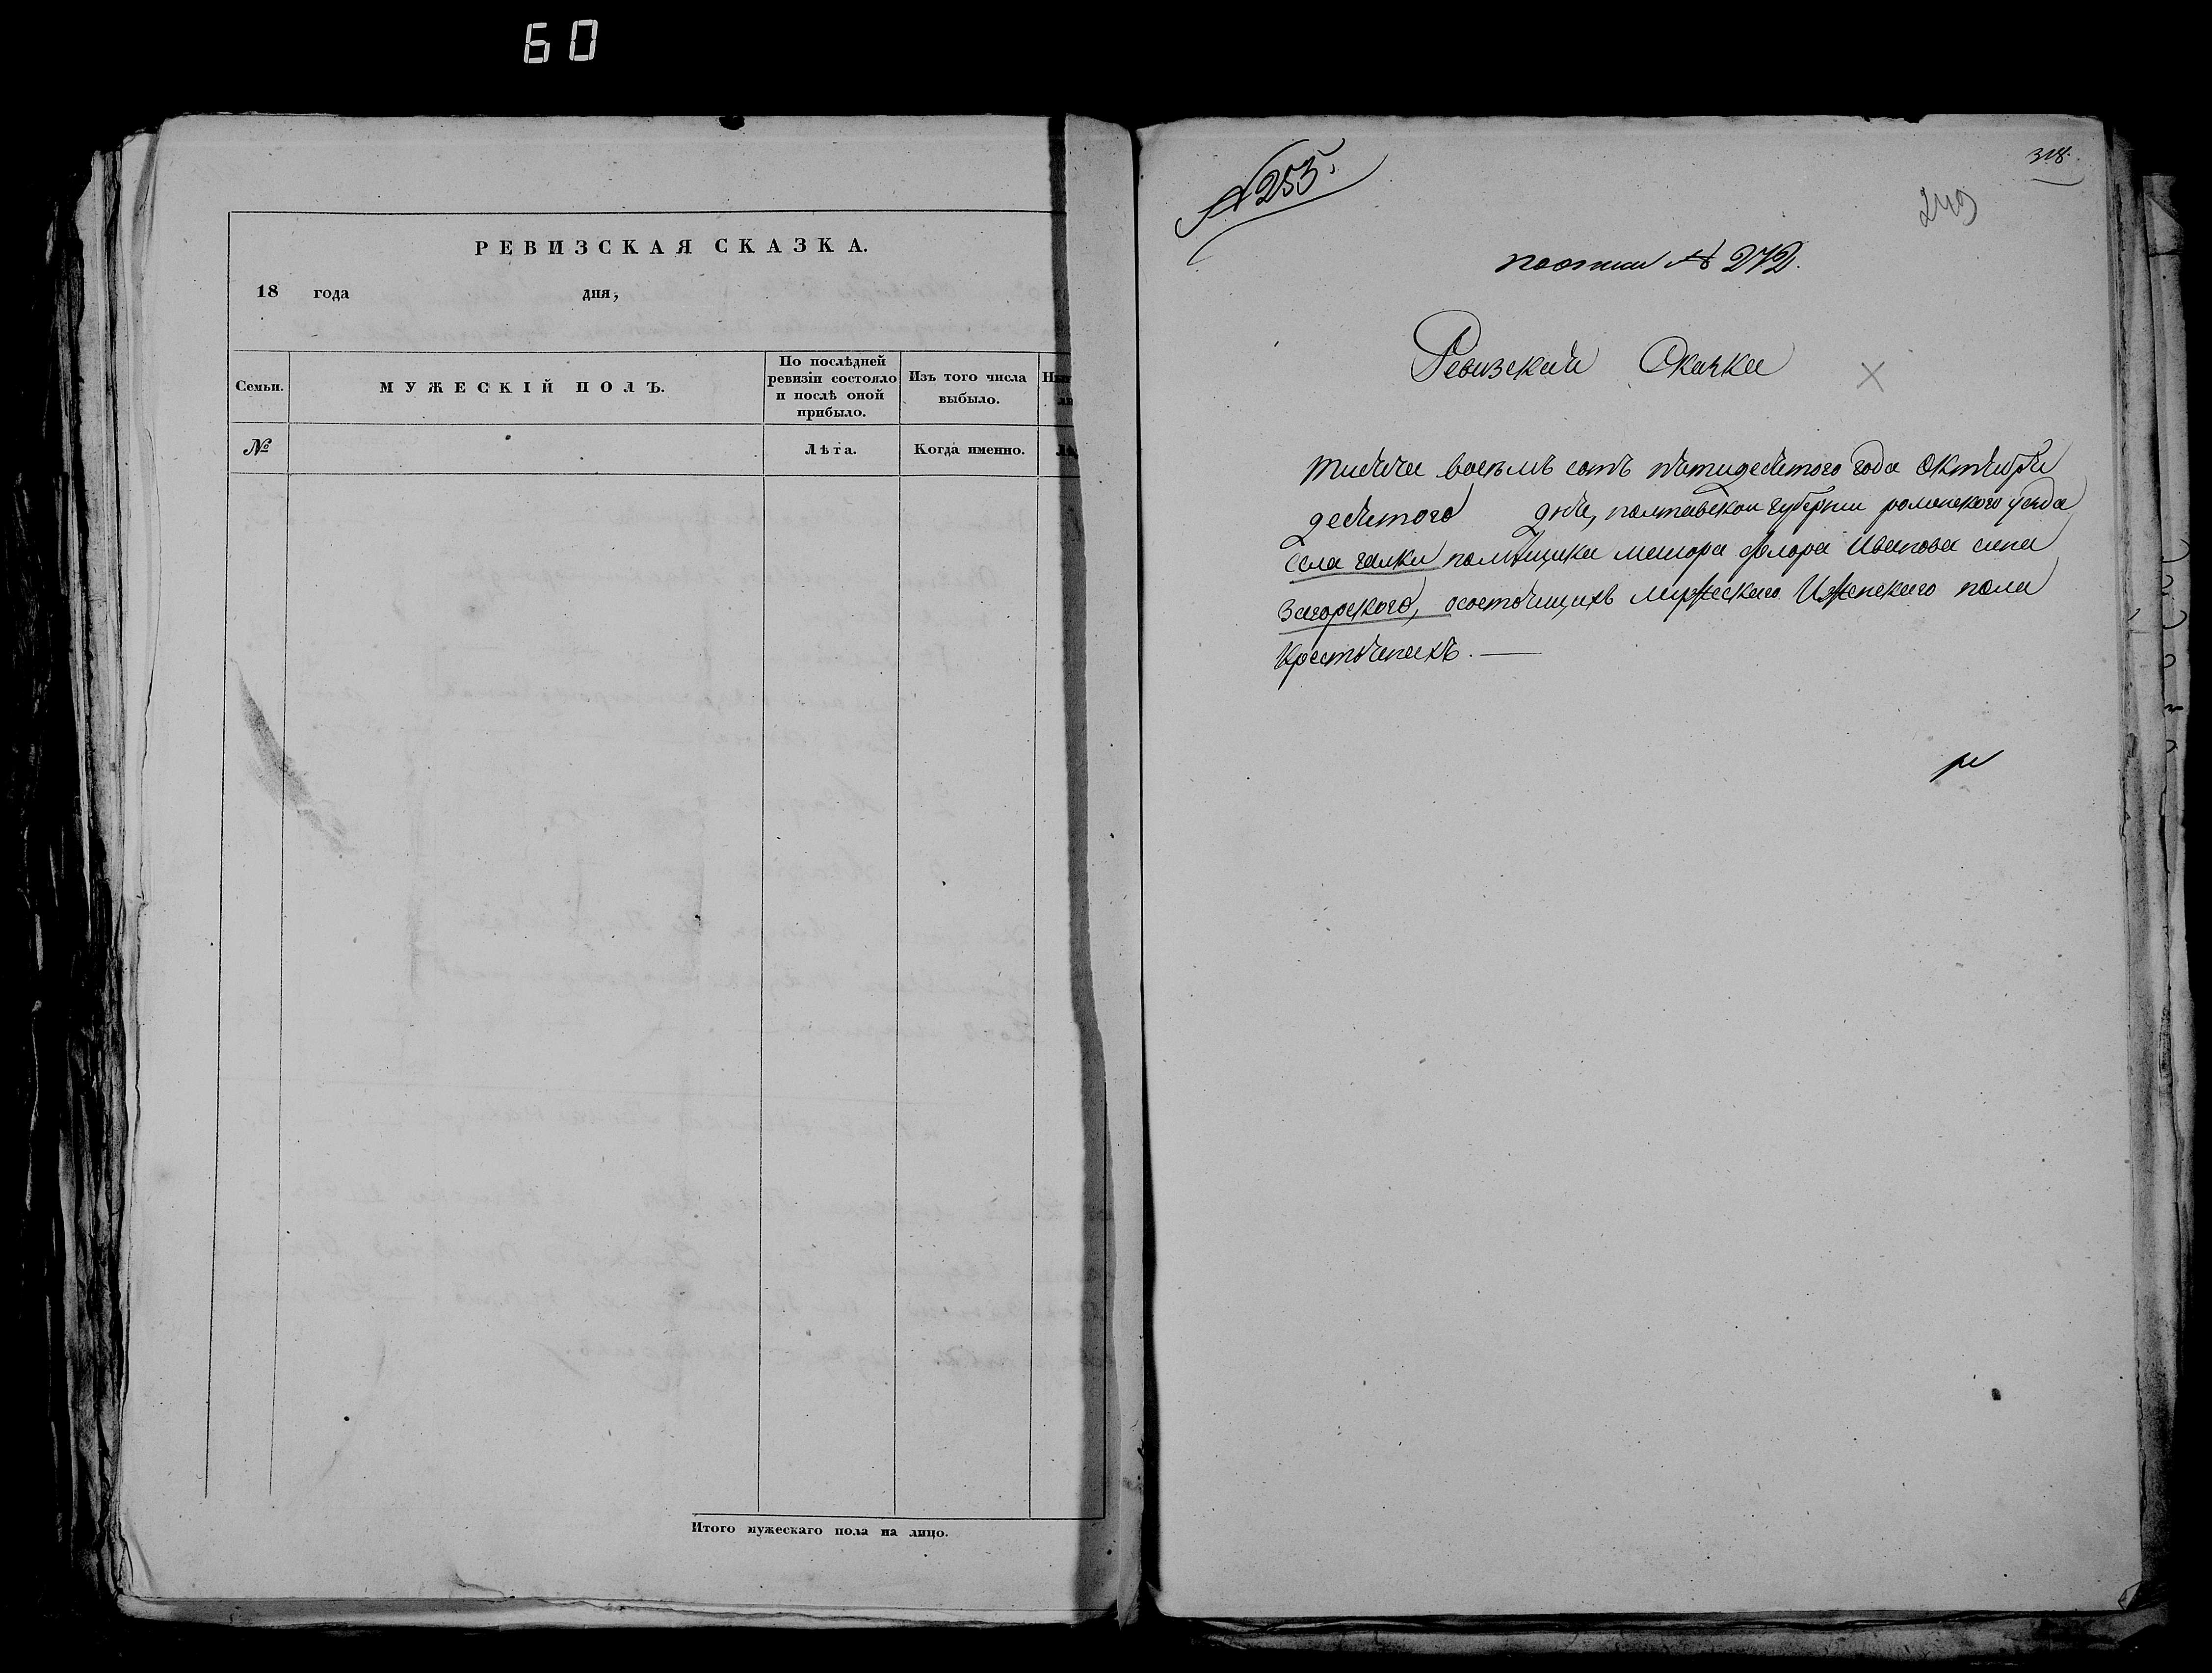 60
РЕВИЗСКАЯ СКАЗКА.
18 года дня,
Семьи.
МУЖЕСКІЙ ПОЛЪ.
По послѣдней ревизіи состояло и послѣ оной прибыло.
Изъ того числа выбыло.
№
Лѣта.
Когда именно.
Итого мужескаго пола на лицо.
№ 253.
318.
249
№ 272.
Ревизская Скачка
тисяча восемъ сотъ пятидесятого года Октября
десятого дня, полтавской губерніи роменского уезда
села галки помѣщика маиора флора Иванова сина
Загорского, осостоящихъ мужескаго Иженскаго пола
Крестянахъ.